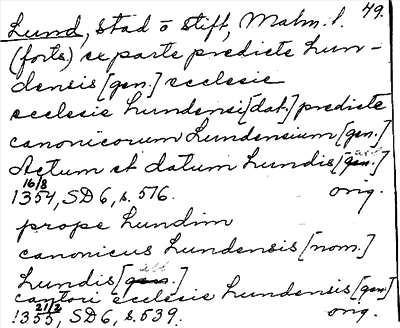 49.
Lund, stad o stift, Malm. l.
(forts.) ex parte predicte Lun-
densis [gen.] ecclesie
ecclesie Lundensi [dat.] predicte
canonicorum Lundensium [gen.]
Actum et datum Lundis [abl.]
16/8
1354, SD 6, s. 516. orig.
prope Lundim
canonicus Lundensis [nom.]
Lundis [abl.]
cantori ecclesie Lundensis [gen.]
21/2
1355, SD 6, s. 539. orig.